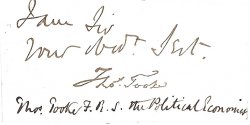 I am Sir
Your obedt. Sert.
Thos. Tooke
Thos. Tooke F. R. S. the Political Economist